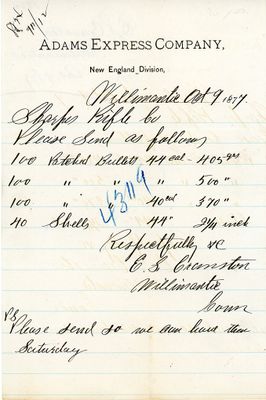 Rx
10/12
ADAMS EXPRESS COMPANY,
New England Division,
Willimantic Oct 9 1877
Sharps Rifle Co
Please Send as follows
100 Patched Bullets 44 cal - 405 grs
100 " " " 500 "
100 " " 40 cal 370 "
43119
40 Shells 44" 2 1/4 inch
Respectfully &c
E. S. Cranston
Willimantic
Conn
P.S.
Please send so we can have them
Saturday